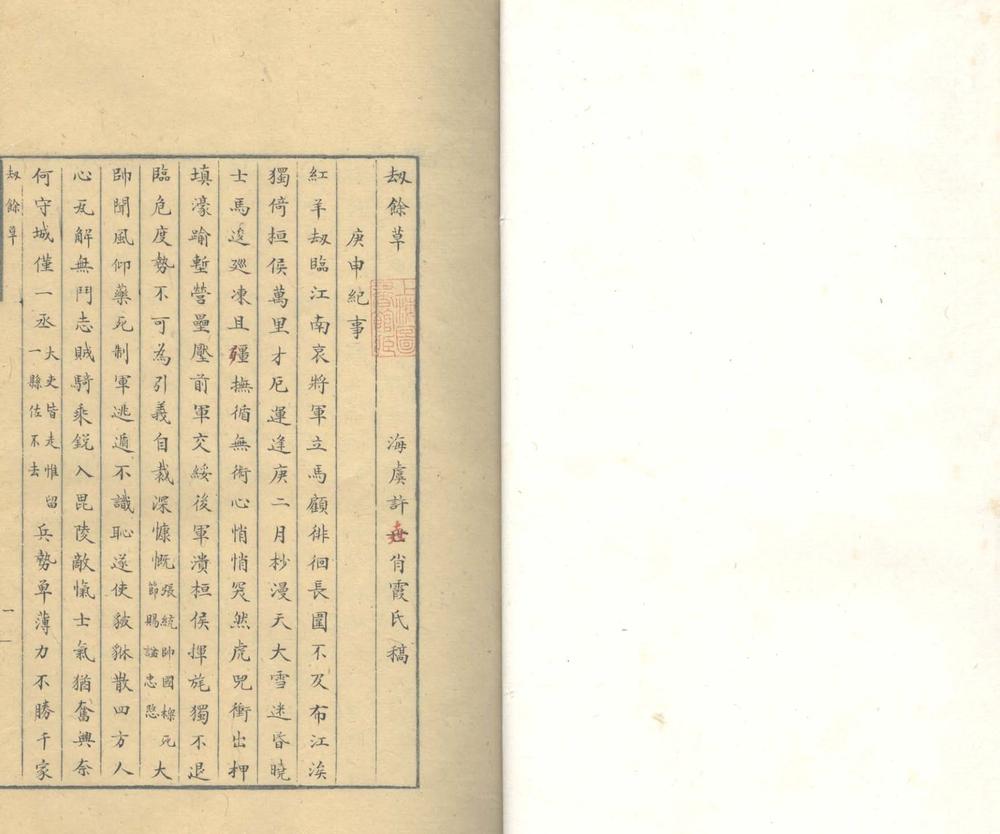 刼餘草　海虞許壵肖霞氏稿
上海圖書館藏
庚申紀事
紅羊刼臨江南哀將軍立馬顧徘徊長圍不及布江涘
獨倚桓侯萬里才厄運逢庚二月杪漫天大雪迷昏曉
士馬逡廵凍且殭撫循無術心悄悄突然虎兕衝出押
填濠踰塹營壘壓前軍交綏後軍潰桓侯揮旄獨不退
臨危度勢不可為引義自裁深慷慨張統帥國樑死節賜諡忠愍大
帥聞風仰藥死制軍逃遁不識恥遂使貔貅散四方人
心瓦解無鬥志賊騎乘銳入毘陵敵愾士氣猶奮興奈
何守城僅一丞大吏皆走惟留一縣佐不去兵勢單薄力不勝千家
刼餘草　一